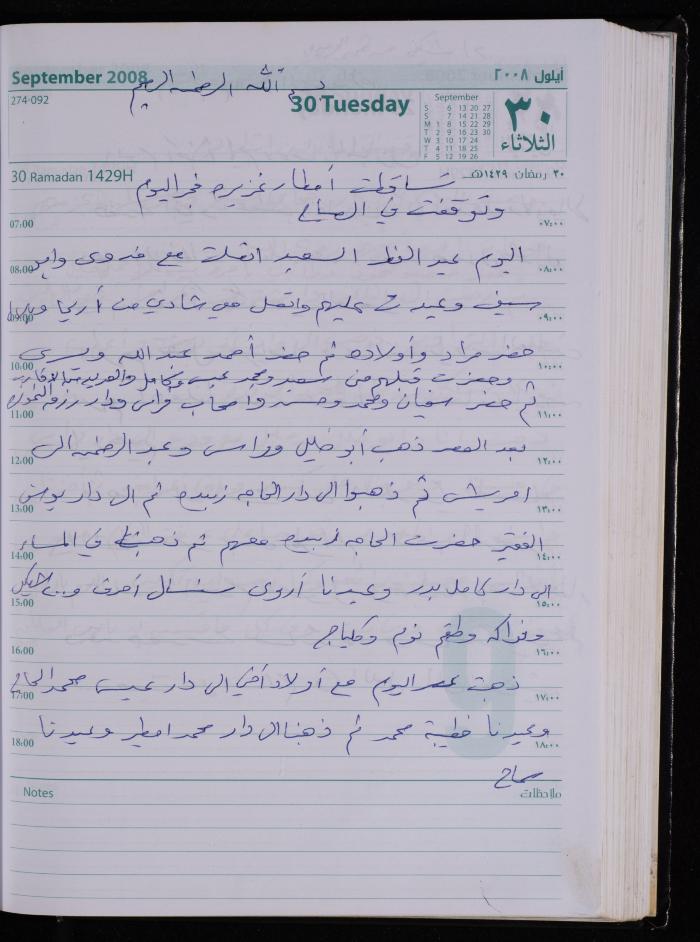 September 2008
أيلول ٢٠٠٨
بسم الله الرحمن الرحيم
274-092
30 Tuesday
September
S 6 13 20 27
S 7 14 21 28
M 1 8 15 22 29
T 2 9 16 23 30
W 3 10 17 24
T 4 11 18 25
F 5 12 19 26
٣٠
الثلاثاء
30 Ramadan 1429H
٣٠ رمضان ١٤٢٩هـ
تساقطت أمطار غزيره فجر اليوم
وتوقفت في الصباح
07:00 ٠٧:٠٠
اليوم عيد الفطر السعيد اتصلت مع فدوى
08:00 ٠٨:٠٠
سيف وعيدت عليهم واتصل معي شادي من أريحا
09:00 ٠٩:٠٠
حضر مراد وأولاده ثم حضر أحمد عبدالله ويسرى
10:00 ١٠:٠٠
وحضرت قبلهم سعيد ومحمد عيسى وكامل
ثم حضر سفيان ومحمد واصحاب فراس ودار رزق
11:00 ١١:٠٠
بعد العصر ذهب أبو خليل وفراس وعبد الرحمن الى
12:00 ١٢:٠٠
ثم ذهبوا الى دار الحاجه زبيده ثم الى دار يوسف
13:00 ١٣:٠٠
الفقير حضرت الحاجه زبيده معهم ثم ذهبنا في المساء
14:00 ١٤:٠٠
الى دار كامل بدر وعيدنا أروى
15:00 ١٥:٠٠
وفواكه وطقم نوم
16:00 ١٦:٠٠
ذهبت عصر اليوم مع أولاد أختي الى دار عيسى محمد الحاج
17:00 ١٧:٠٠
وعيدنا خطيبة محمد ثم ذهبنا الى دار محمد امطير وعيدنا
18:00 ١٨:٠٠
سماح
Notes
ملاحظات